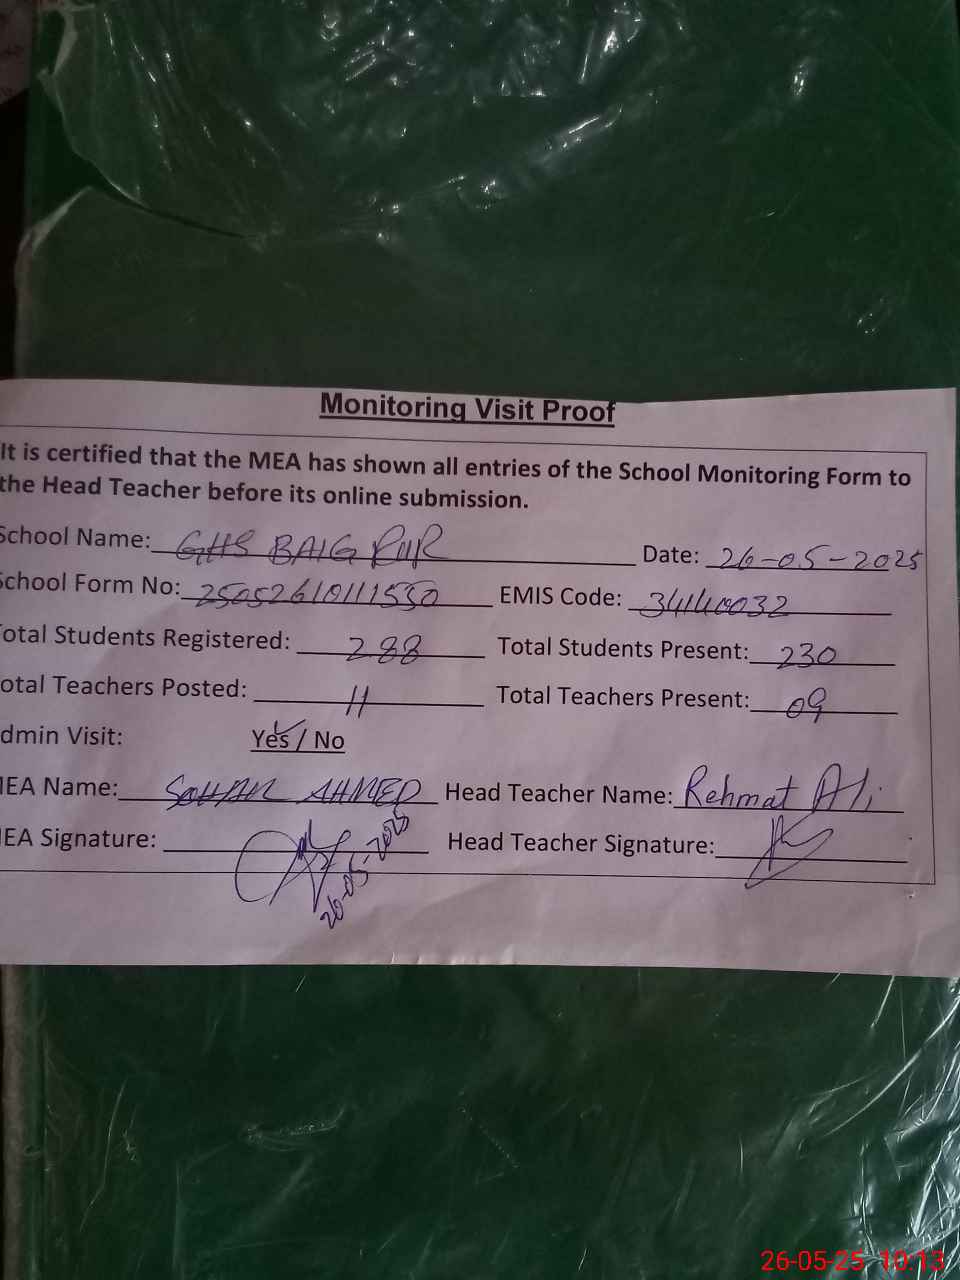 Monitoring Visit Proof
It is certified that the MEA has shown all entries of the School Monitoring Form to
the Head Teacher before its online submission.
School Name: GHS BAIG PUR Date: 26-05-2025
School Form No: 25052610111550 EMIS Code: 34140032
Total Students Registered: 288 Total Students Present: 230
Total Teachers Posted: 11 Total Teachers Present: 09
dmin Visit: Yes / No
MEA Name: AHMED Head Teacher Name: Rehmat Ali
MEA Signature: Head Teacher Signature:
26-05-2025
26-05-25 10:13